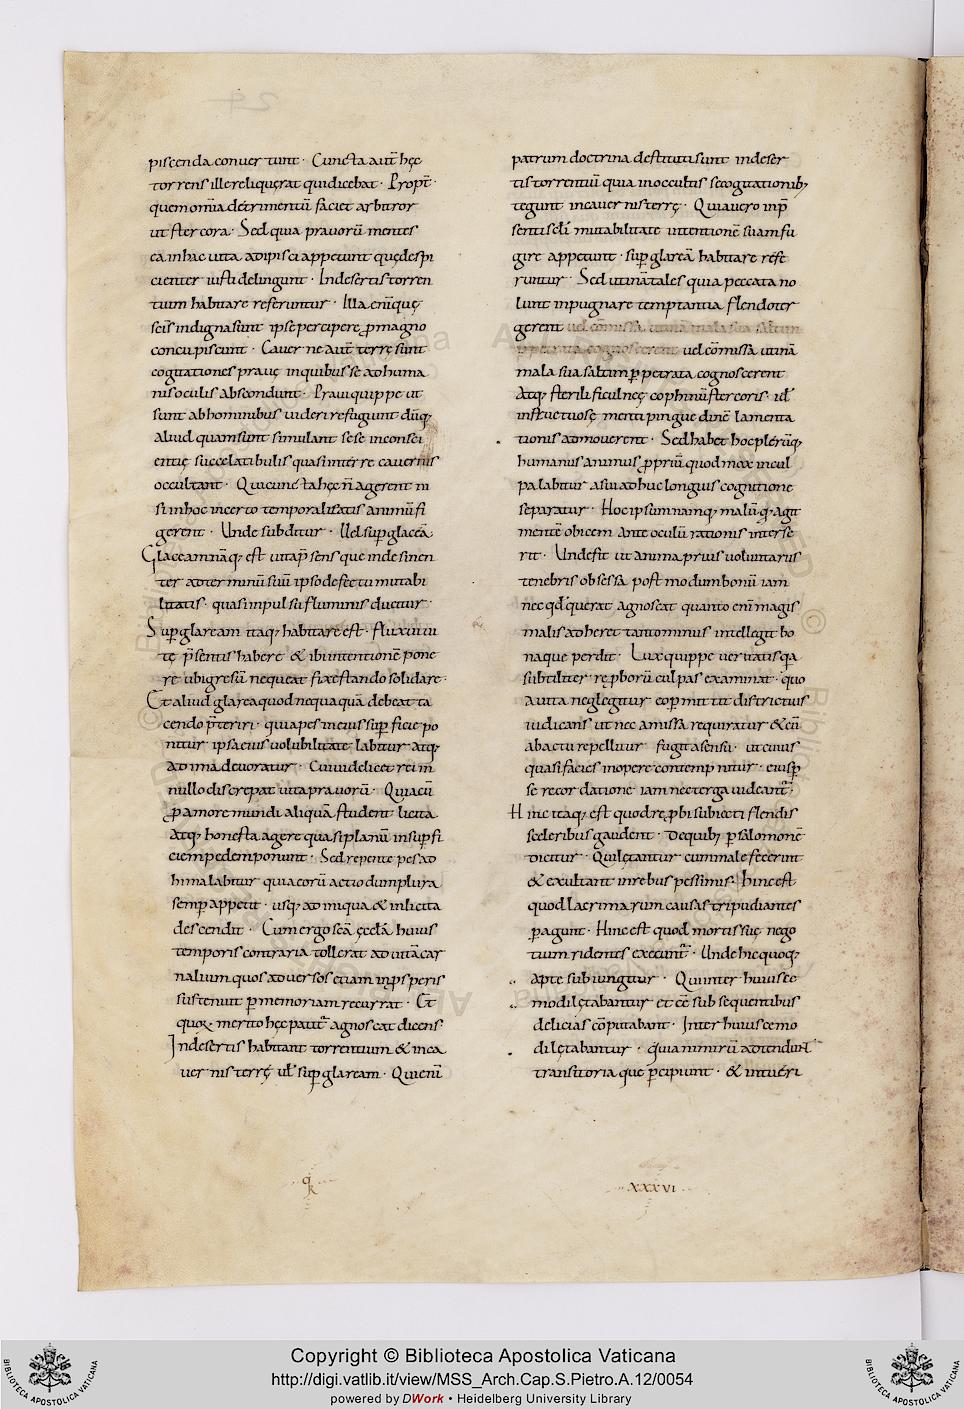 piscenda conuertunt · Cuncta aut̄ hęc
torrens ille reliquerat qui dicebat · Propt̄
quem om̄ia detrimentū faciet arbitror
ut stercora · Sed quia prauorū mentes
ea in hac uita adipisci appetunt quę despi
cienter iusti delingunt · In desertis torren
tium habitare referuntur · Illa enī quę
sc̄is indigna sunt ipse percipere p̱ magno
concupiscunt · Cauerne aut̄ terrę sunt
cogitationes prauę in quibus se ad huma
nis oculis abscondunt · Praui quippe ut
sunt ab hominibus uideri refugiunt dūq;
aliud quam sunt simulant sese in consci
entię suę celatibulis quasi in terre cauernis
occultant · Qui cuncta hęc n̄ agerent ni
si in hoc incerto temporalitatis animū fi
gerent · Unde subditur · Uel sup̱ glaceā
Glaceam nāq; est uita p̄sens que in desinen
ter ad terminū suū ipso defectu mutabi
litatis · quasi inpulsu fluminis ducitur ·
Sup̱ glaream itaq; habitare est · fluxui ui
tę p̄sentis habere & ibi intentionē pone
re ubi gresū nequeat fixe stando solidare ·
Et aliud glarea quod nequaquā debeat ta
cendo p̄teriri · quia pes in eius sup̱ficie po
nitur ipsa eius uolubilitate labitur atq;
ad ima deuoratur · Cui uidelicet rei in
nullo discrepat uita prauorū · Qui acū
p̱ amore mundi aliquā student licita
atq; honesta agere quasi planū in sup̱fi
ciem pedem ponunt · Sed repente pes ad
hima labitur quia corū actio dum plura
semp̱ appetit · usq; ad iniqua & inlicita
descendit · Cum ergo sc̄ā ęcclā huius
temporis contraria tollerat ad uitā car
nalium quos aduersos etiam in p̱speris
sustenuit p̱ memoriam recurrat · Et
quor merito hęc patit̄ agnoscat dicens
In desertis habitant torrentium & in ca
uernis terrę ul̄ sup̱ glaream · Qui enī
qr
patrum doctrina destituti sunt in deser
tis torrentiū quia in occultis se cogitationib;
tegunt in cauernis terrę · Quia uero in p̄
senti scl̄i mutabilitate intentionē suam fu
gire appetunt · sup̱ glareā habitare refe
runtur · Sed utinā tales quia peccata no
lunt inpugnare temptantia flendo ter
gerent uel cōmissa utinā mala sua saltim
p̱petrata cognoscerent uel cōmissa utinā
mala sua saltim p̱petrata cognoscerent
Atq; sterili ficulneę cophinū stercoris · id ̄
infructuosę menti pinguedinē lamenta
tionis admouerent · Sed habet hoc plerūq;
humanus animus p̱priū quod mox in cul
pa labitur a sui adhuc longius cognitione
separatur · Hoc ipsum namq; malū q; agit
mentē obicem ante oculū rationis interse
rit · Unde fit ut anima prius uoluntariis
tenebris obsessa postmodum bonū iam
nec qd̄ querat agnoscat quanto enī magis
malis adheret tanto minus intellegit bo
na que perdit · Lux quippe ueritatis q̄a
subtiliter reprborū culpas examinat · quo
a uita neglegitur cor p̱mittit districtius
iudicans ut nec amissa requiratur & cū
ab actu repellitur fugit a sensu · ut cuius
quasi facies in opere contempnitur · eius p̱
se recordatione iam nec terga uideant̄ ·
Hinc itaq; est quod rep̱bi subiecti flendis
sceleribus gaudent · De quib; p̱ salomonē
dicitur · Qui lętantur cum male fecerint
& exultant in rebus pessimis · hinc est
quod lacrimarum causas tripudiantes
p̱agunt · Hinc est quod mortis suę nego
tium ridentes execunt̄ · Unde hic quoq;
apte subiungitur · Qui inter huiusce
modi lętabantur et cē sub sequentibus
delicias cōputabant · Inter huiuscemo
di lętabantur · quia nimirū adtendunt
transitoria que p̱cipiunt · & intueri
XXXVI
Copyright © Biblioteca Apostolica Vaticana
http://digi.vatlib.it/view/MSS_Arch.Cap.S.Pietro.A.12/0054
powered by DWork • Heidelberg University Library
BIBLIOTECA APOSTOLICA VATICANA
BIBLIOTECA APOSTOLICA VATICANA